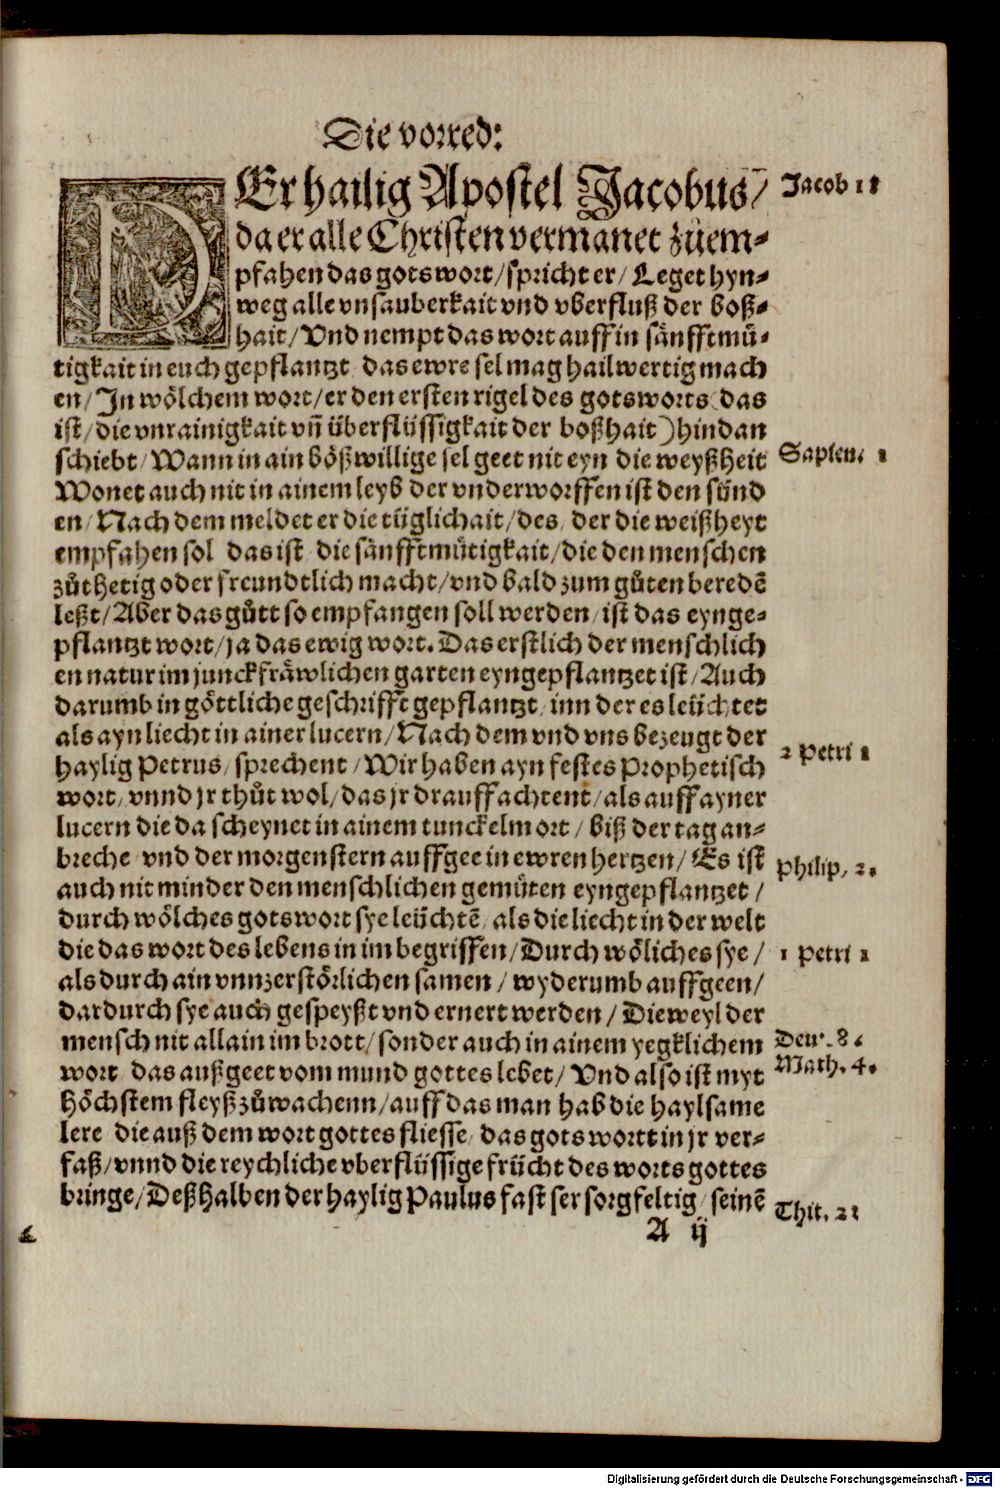 Die vorred:
DEr hailig Apostel Jacobus/
da er alle Christen vermanet zůem-
pfahen das gots wort/ spricht er/ Leget hyn-
weg alle vnsauberkait vnd vberfluß der boß-
hait/ Vnd nempt das wort auff in sänfftmü-
tigkait in euch gepflantzt das ewre sel mag hailwertig mach
en/ In wölchem wort/ er den ersten rigel des gots worts das
ist/ die vnrainigkait vñ überflüssigkait der boßhait) hindan
schiebt/ Wann in ain bößwillige sel geet nit eyn die weyßheit
Wonet auch nit in ainem leyb der vnderworffen ist den sünd
en/ Nach dem meldet er die tüglichait/ des/ der die weißheyt
empfahen sol das ist die sänfftmütigkait/ die den menschen
zůthetig oder freundtlich macht/ vnd bald zum gůten beredẽ
leßt/ Aber das gůtt so empfangen soll werden/ ist das eynge-
pflantzt wort/ ja das ewig wort. Das erstlich der menschlich
en natur im junckfräwlichen garten eyngepflantzet ist/ Auch
darumb in göttliche geschrifft gepflantzt/ inn der es leüchtet
als ayn liecht in ainer lucern/ Nach dem vnd vns bezeugt der
haylig Petrus/ sprechent/ Wir haben ayn festes Prophetisch
wort/ vnnd jr thůt wol/ das jr drauff achtent/ als auff ayner
lucern die da scheynet in ainem tunckelm ort/ biß der tag an-
breche vnd der morgenstern auffgee in ewren hertzen/ Es ist
auch nit minder den menschlichen gemüten eyngepflantzet/
durch wölches gots wort sye leüchtẽ/ als die liecht in der welt
die das wort des lebens in im begriffen/ Durch wöliches sye/
als durch ain vnnzerstörlichen samen/ wyderumb auffgeen/
dardurch sye auch gespeyßt vnd ernert werden/ Die weyl der
mensch nit allain im brott/ sonder auch in ainem yegklichem
wort das außgeet vom mund gottes lebet/ Vnd also ist myt
höchstem fleyß zůwachenn/ auff das man hab die haylsame
lere die auß dem wort gottes fliesse/ das gots wortt in jr ver-
faß/ vnnd die reychliche vberflüssige frücht des worts gottes
bringe/ Deßhalben der haylig Paulus fast ser sorgfeltig/ seinẽ
A ij
Jacob 1
Sapien. 1
2 Petri 1
Philip. 2.
1 Petri 1
Deu. 8
Math. 4.
Thit. 2
Digitalisierung gefördert durch die Deutsche Forschungsgemeinschaft - DFG